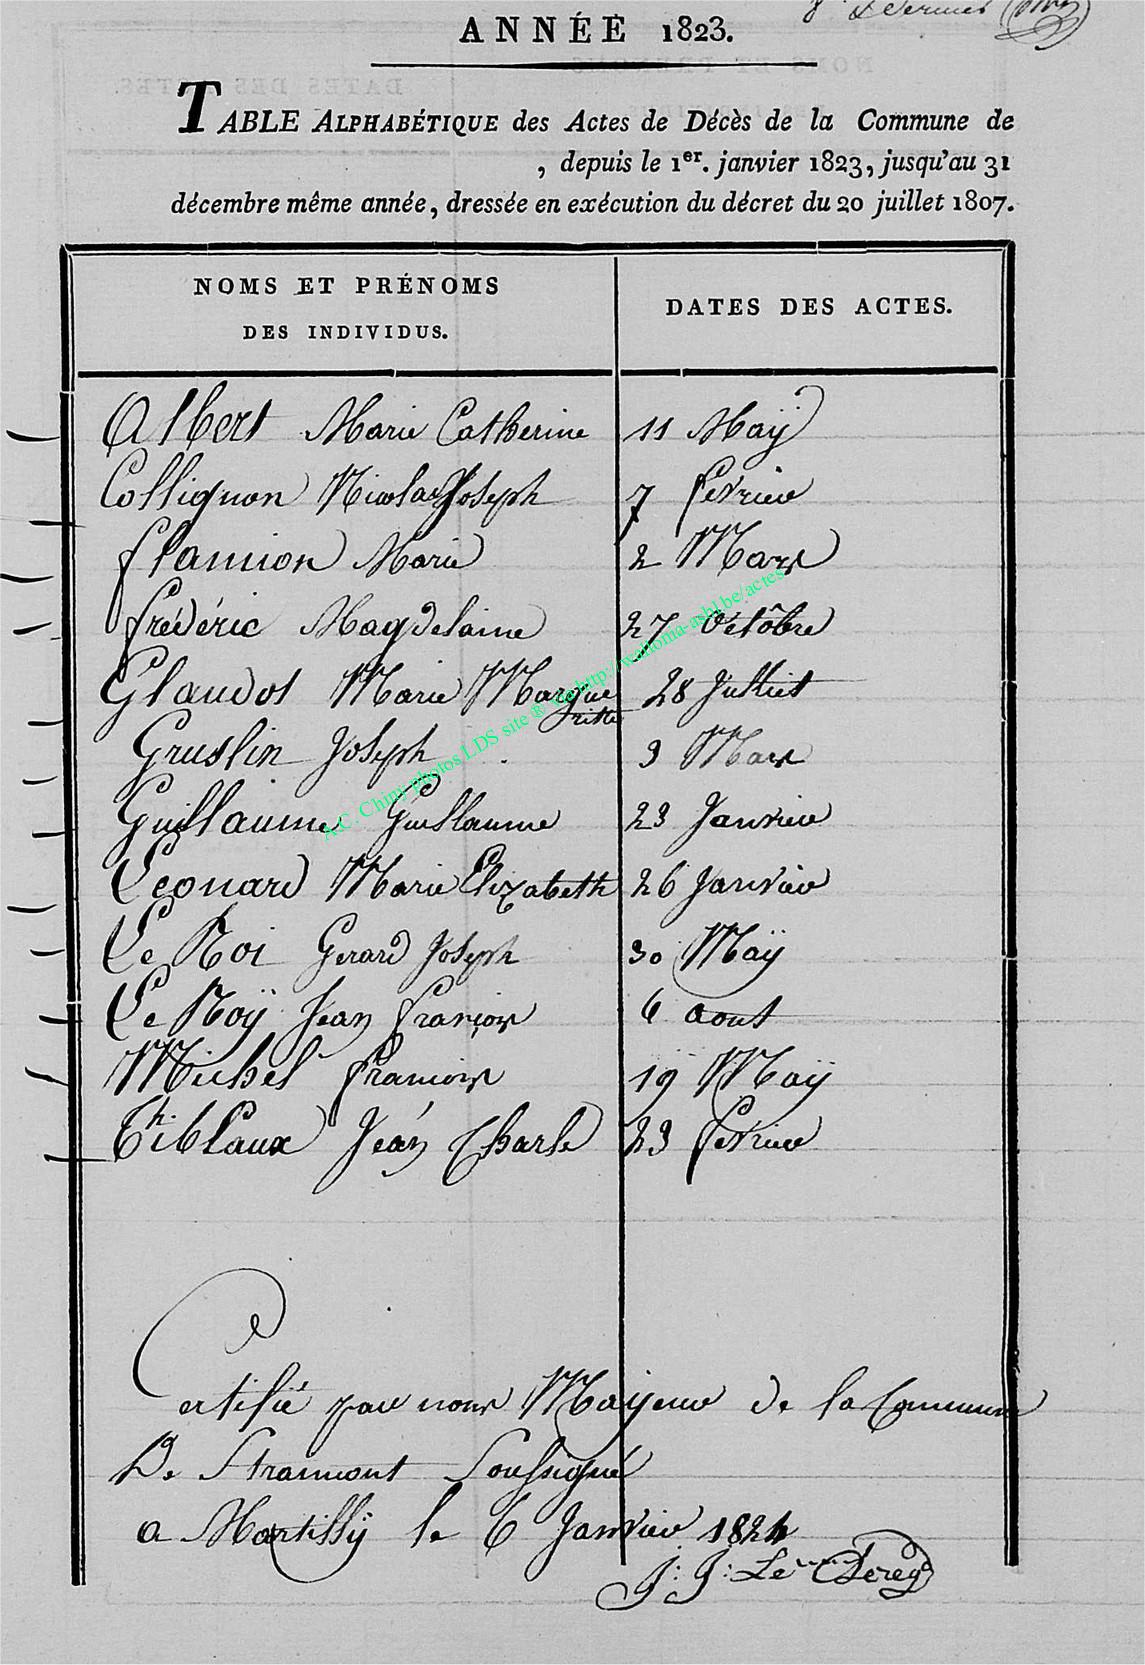 ANNÉE 1823.
TABLE ALPHABÉTIQUE des Actes de Décès de la Commune de
, depuis le 1er. janvier 1823, jusqu'au 31
décembre même année, dressée en exécution du décret du 20 juillet 1807.
NOMS ET PRÉNOMS
DES INDIVIDUS.
DATES DES ACTES.
Albert Marie Catherine 11 Maÿ
Collignon Nicolas Joseph 7 fevrier
flamion Marie 2 Mars
frédéric Magdelaine 27 Octôbre
Glaudot Marie Margue
ritte 28 Julliet
Gruslin Joseph 3 Mars
Guillaume Guillaume 23 Janvier
Leonard Marie Elizabeth 26 Janvier
Le Roi Gerard Joseph 30 Maÿ
Le Roÿ Jean françois 6 aout
Michel francois 19 Maÿ
Thiblaux Jean Charle 23 fevrier
Certifié par nous Mayeur de la Commune
De Straimont Soussigné
a Martilly le 6 Janvier 1824
J: J: Le
A.C. Chiny photos LDS site & via http://walloma-asbl.be/actes